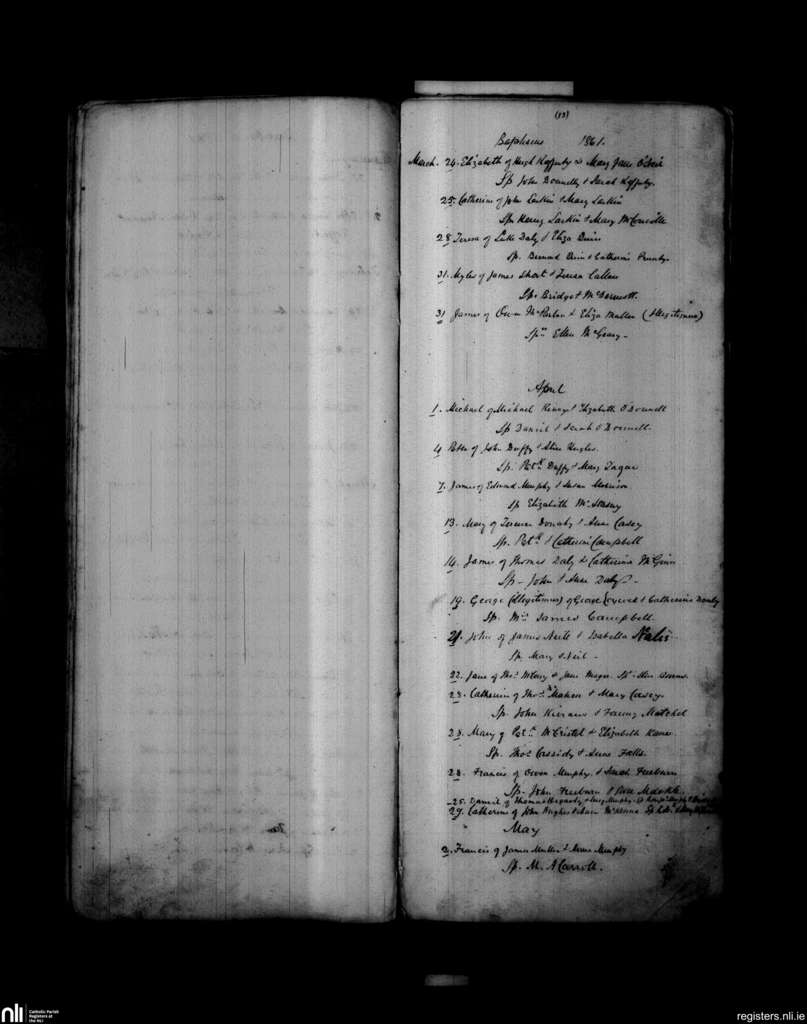 (13)
Baptisms 1861.
March. 24. Elizabeth of Hugh Rafferty & Mary Jane
Sp John Donnelly & Sarah Rafferty.
25. Catherine of John Larkin & Mary Larkin
Sp. Henry Larkin & Mary
28 Teresa of Luke Daly & Eliza Quin
Sp. Bernard Quin & Catherine
31. Myles of James Short & Teresa Callan
Sp. Bridget McDermott.
31 James of Owen McParlan & Eliza Mallen (Illegitimus)
Spr Ellen McGeary -
April
1. Michael of Michael & Elizabeth O'Donnell
Sp Daniel & Sarah O'Donnell.
4. Peter of John Duffy & Alice Hughes
Sp. Patk Duffy & Mary
7. James of Edward Murphy & Susan
Sp Elizabeth
13. Mary of Terence Donaghy & Anne Casey
Sp. Patk & Catherine Campbell
14. James of Thomas Daly & Catherine McGinn
Sp - John & Anne Daly -
19. George (Illegitimus) of George & Catherine
Sp. Mrs James Campbell.
21. John of James Neill & Isabella
Sp. Mary O'Neil -
22. Jane of Thos & Jane Sp.
23. Catherine of Thos McMahon & Mary Casey.
Sp. John Kiernan & Fanny Matchet
23. Mary of Patk McCristol & Elizabeth Kane.
Sp. Thos Cassidy & Anne
28. Francis of Owen Murphy & Sarah Freeburn
Sp. John Freeburn & Rose
25. Daniel of Thomas Hagarty & Murphy Sp
29. Catherine of John Hughes & Anne McKenna Sp
May
2. Francis of James Mullen & Anne Murphy
Sp. M. A Carroll.
nli
Catholic Parish
Registers at
the NLI
registers.nli.ie